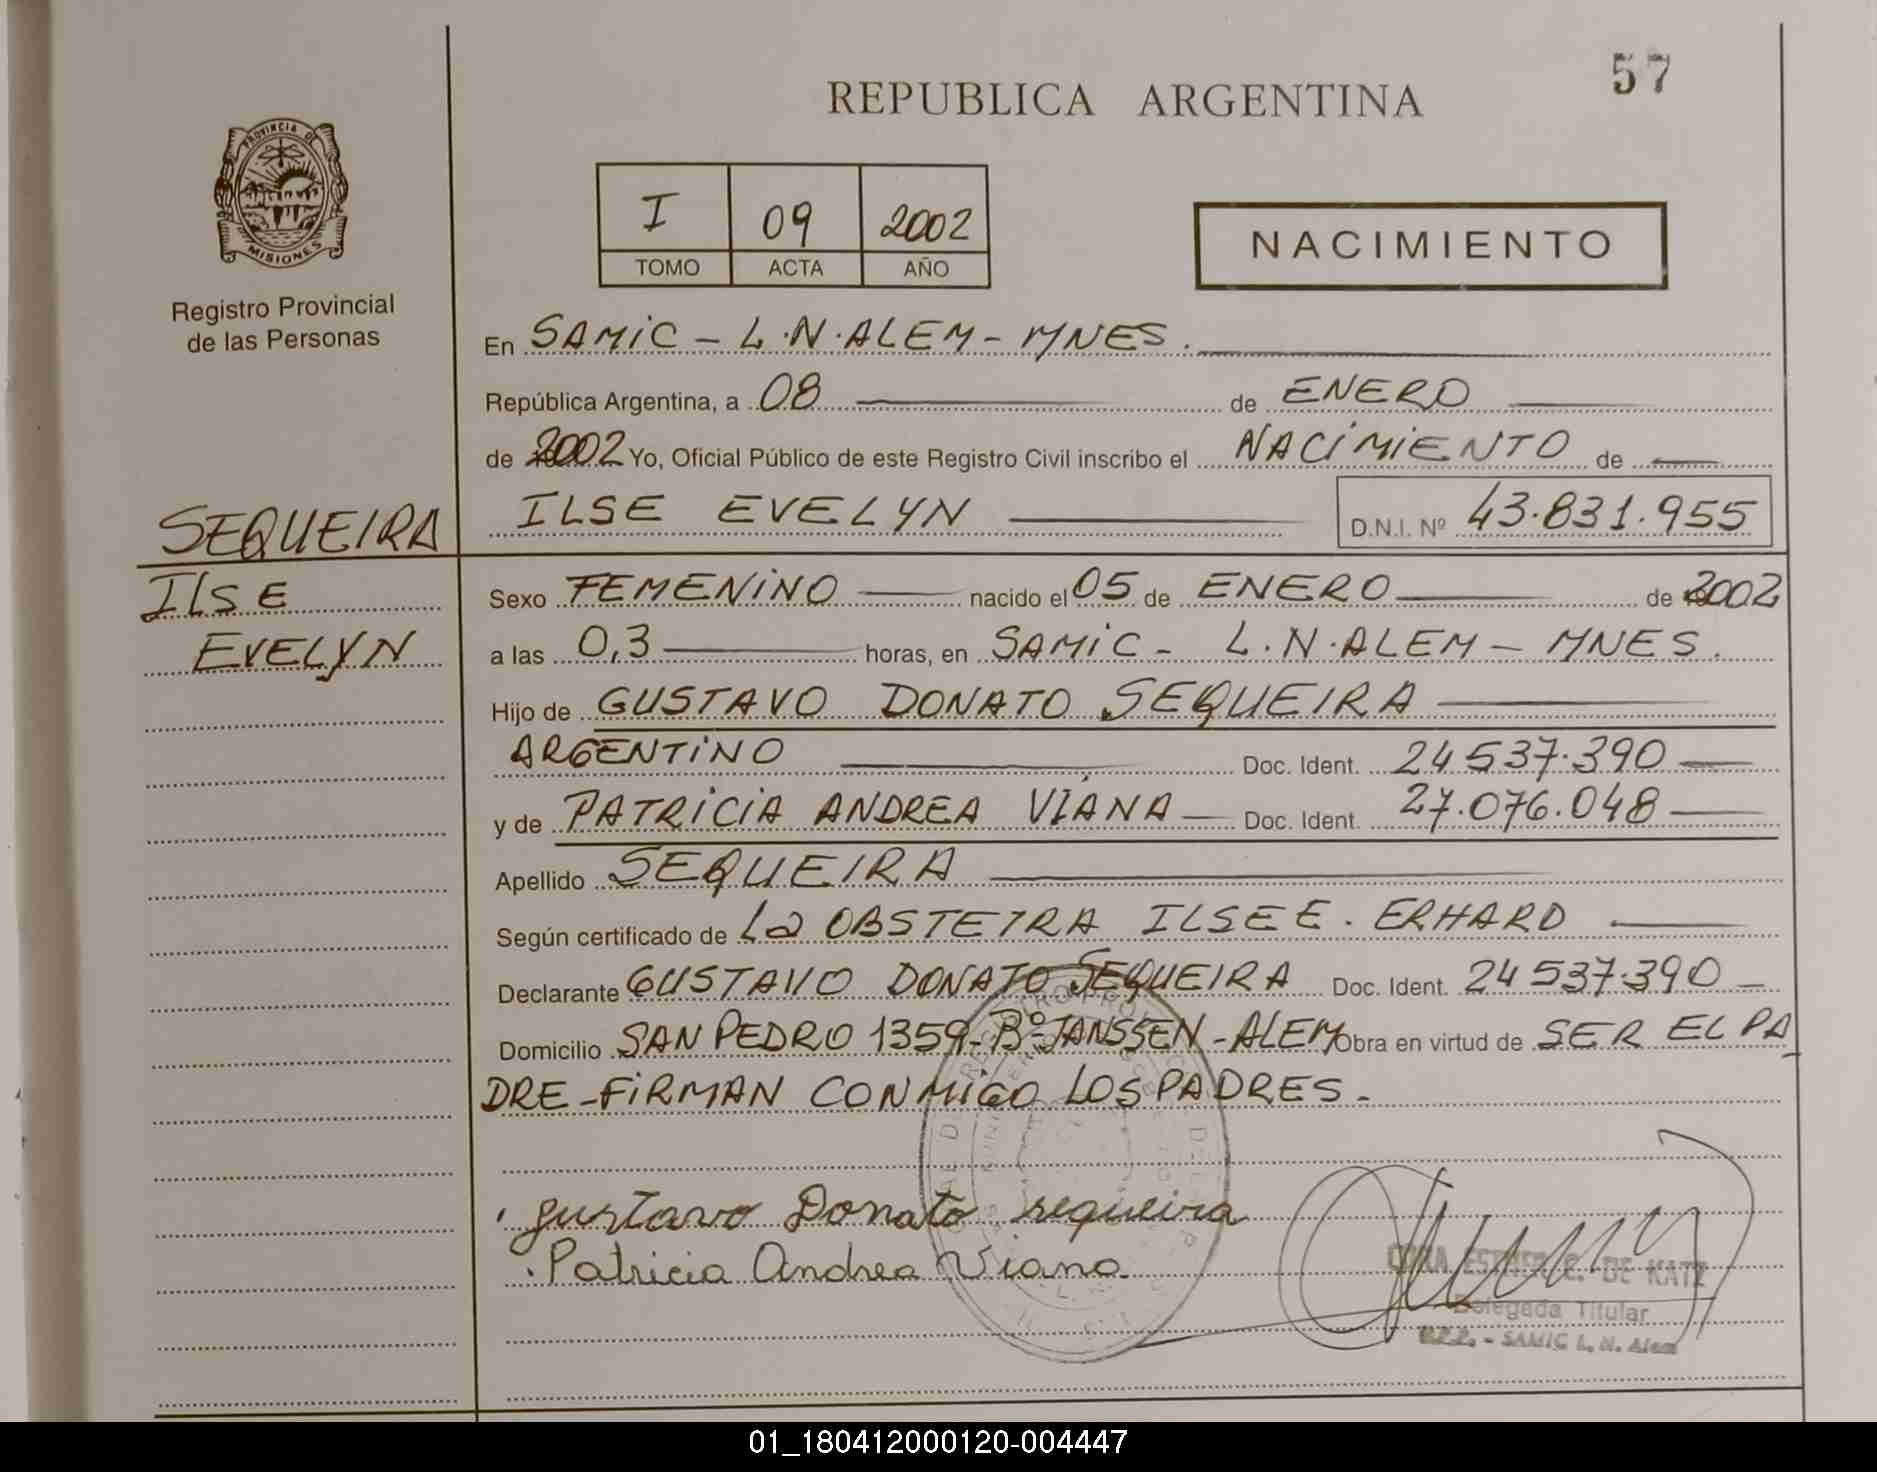 57
REPUBLICA ARGENTINA
PROVINCIA DE
MISIONES
Registro Provincial
de las Personas
I 09 2002
TOMO ACTA AÑO
NACIMIENTO
En SAMIC - L.N.ALEM - MNES.
República Argentina, a 08 de ENERO
de 2002 Yo, Oficial Público de este Registro Civil inscribo el NACIMIENTO de
ILSE EVELYN D.N.I. Nº 43.831.955
SEQUEIRA
ILSE
EVELYN
Sexo FEMENINO nacido el 05 de ENERO de 2002
a las 0,3 horas, en SAMIC - L.N.ALEM - MNES.
Hijo de GUSTAVO DONATO SEQUEIRA
ARGENTINO Doc. Ident. 24537.390
y de PATRICIA ANDREA VIANA Doc. Ident. 27.076.048
Apellido SEQUEIRA
Según certificado de La OBSTETRA ILSE E. ERHARD
Declarante GUSTAVO DONATO SEQUEIRA Doc. Ident. 24537.390
Domicilio SAN PEDRO 1359-Bº JANSSEN-ALEM Obra en virtud de SER EL PA
DRE-FIRMAN CONMIGO LOS PADRES-
Gustavo Donato sequeira
Patricia Andrea Viana
ESTHER C. DE KATZ
Delegada Titular
- SAMIC L. N. Alem
01_180412000120-004447